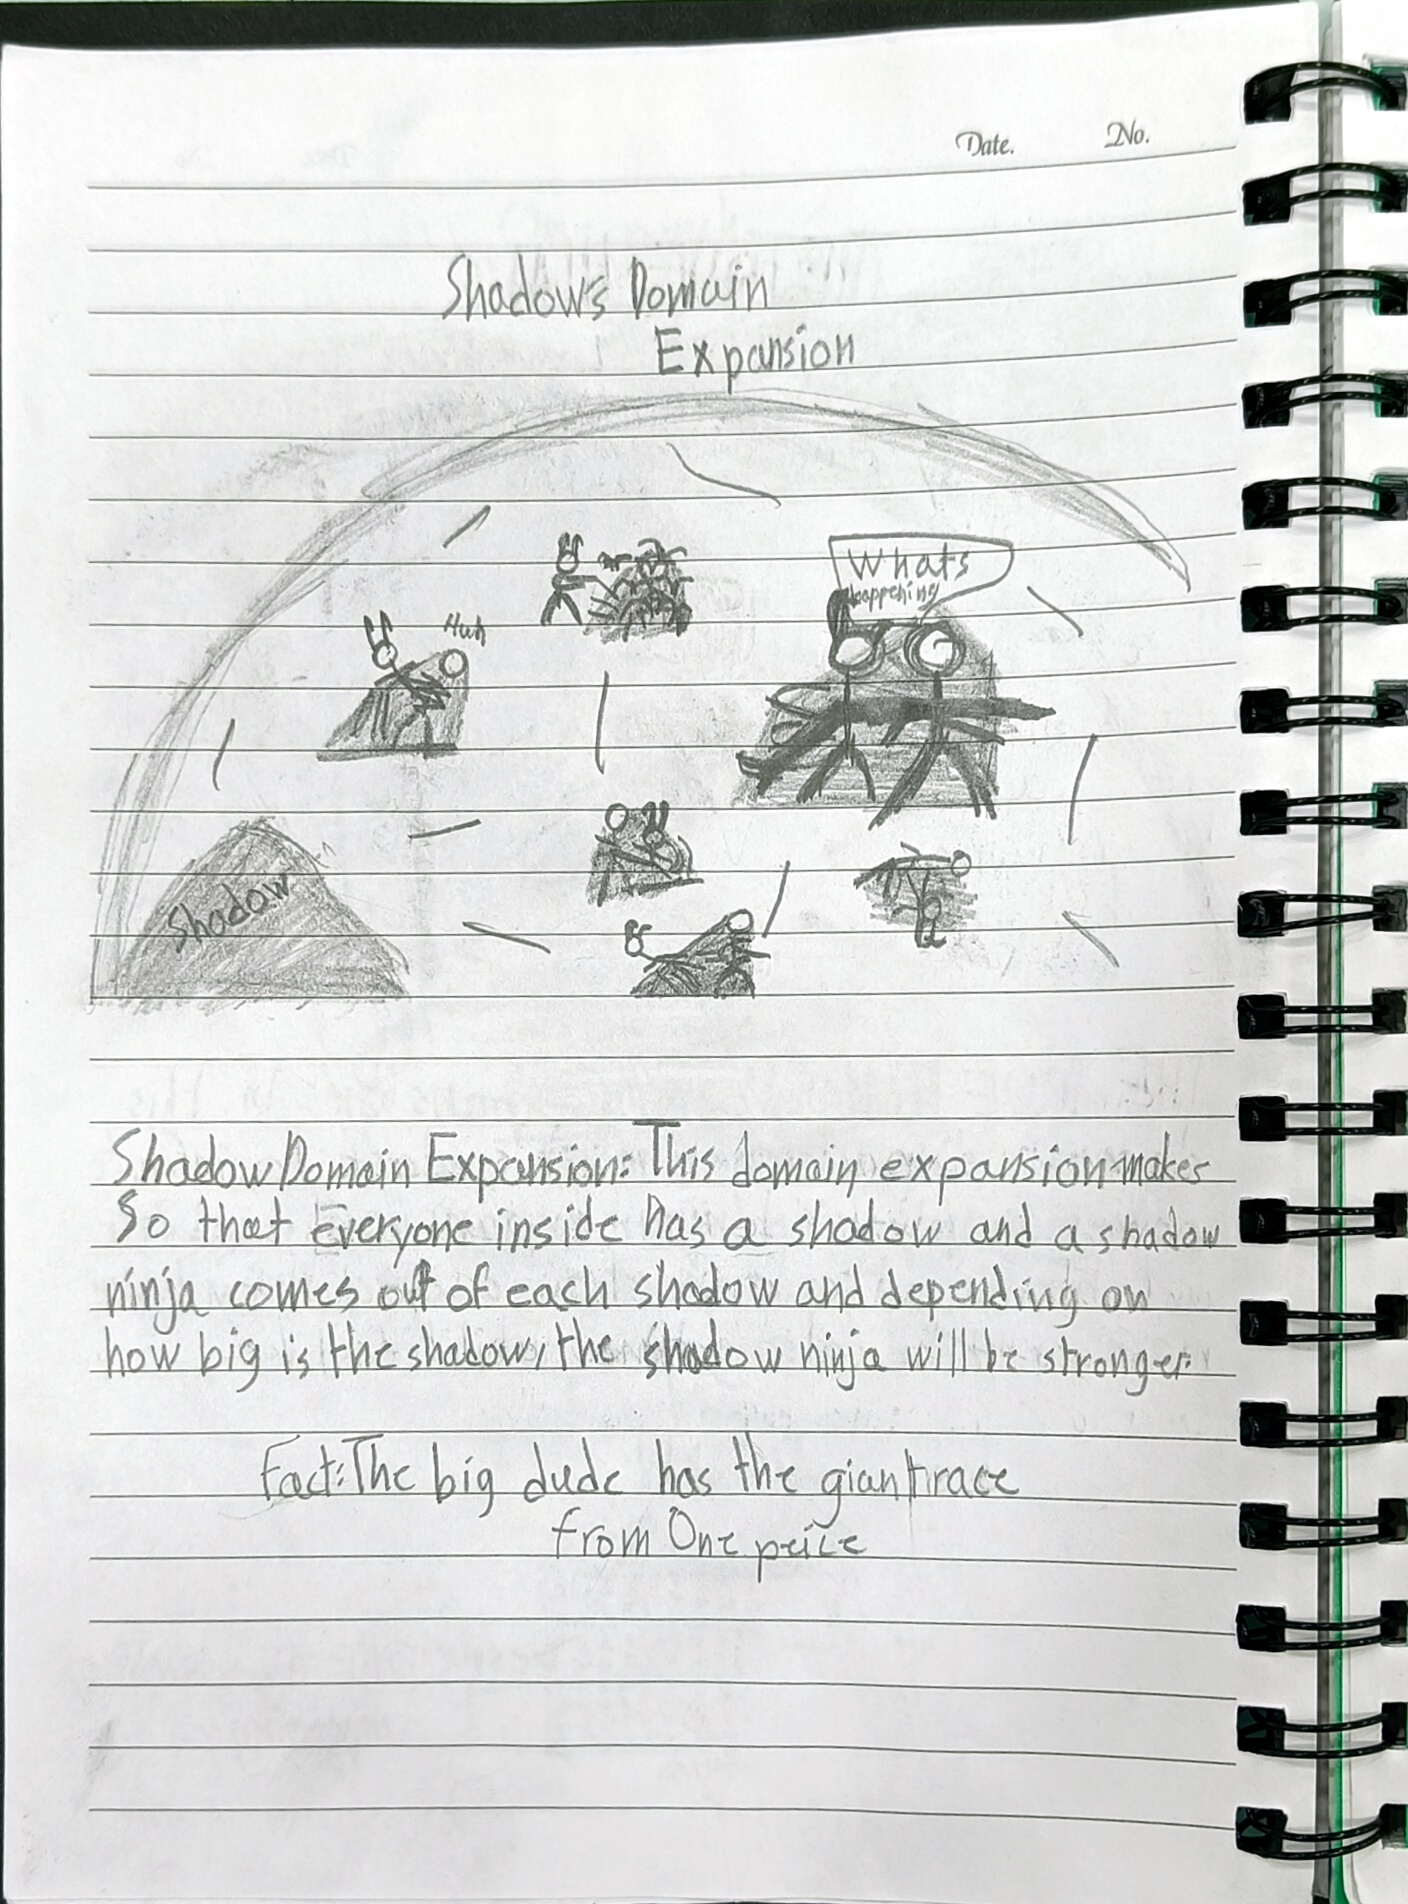 Date. No.
Shadow's Domain
Expansion
Whats
happening
Huh
Shadow
Shadow Domain Expansion: This domain expansion makes
So that everyone inside has a shadow and a shadow
ninja comes out of each shadow and depending on
how big is the shadow, the shadow ninja will be stronger.
Fact: The big dude has the giant race
from One peice